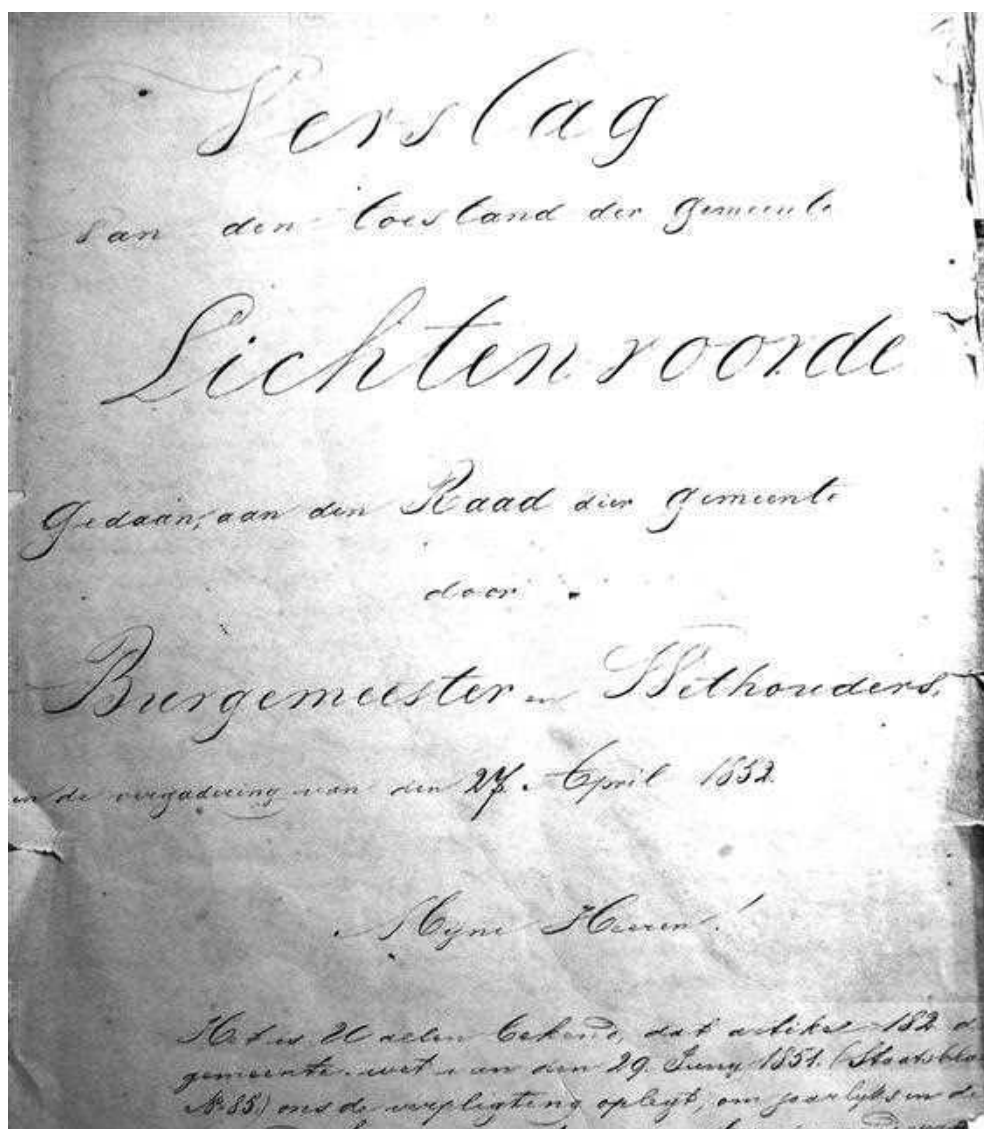 Verslag
van den toestand der gemeente
Lichtenvoorde
Gedaan, aan den Raad dier gemeente
door
Burgemeester en Wethouders,
in de vergadering van den 27. April 1852.
Mijne Heeren!
Het is U allen bekend, dat artikel 182 d
gemeente-wet van den 29 Juny 1851. (Staatsblad
No. 85) ons de verpligting oplegt, om jaarlyks in de